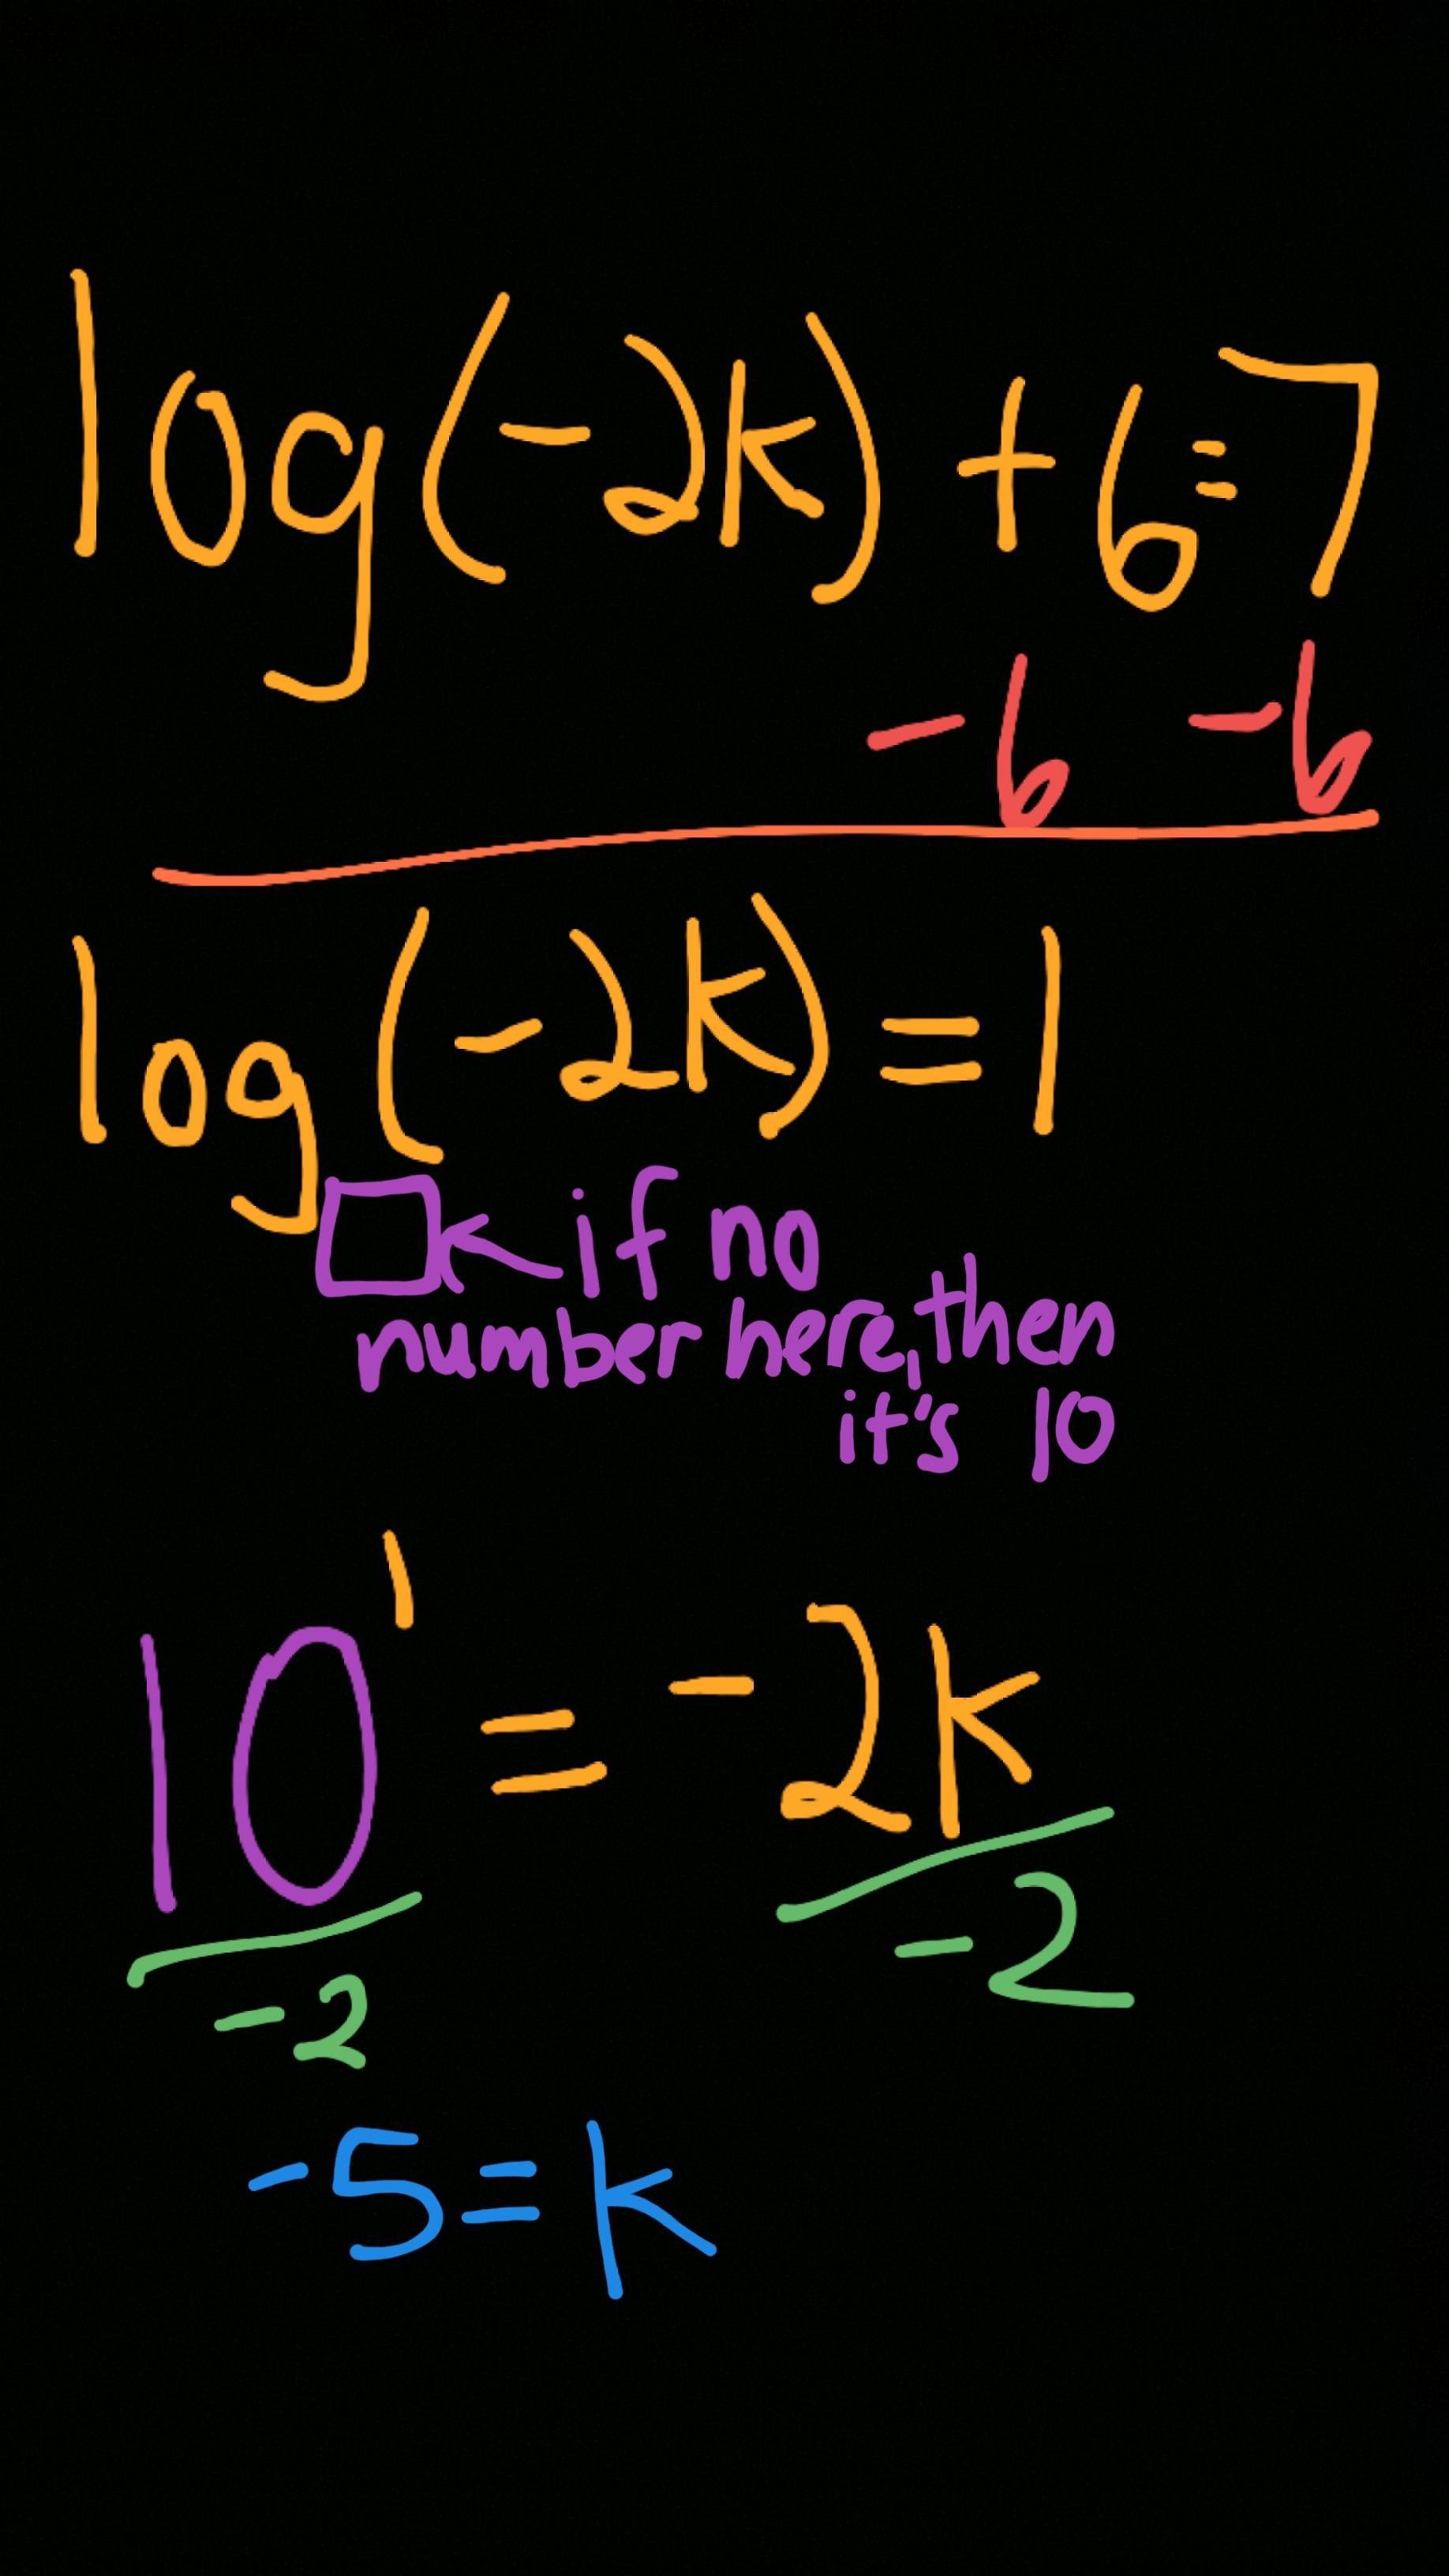 log(-2k)+6=7
-6 -6
log(-2k)=1
if no
number here, then
it's 10
10¹=-2k
-2 -2
-5=k